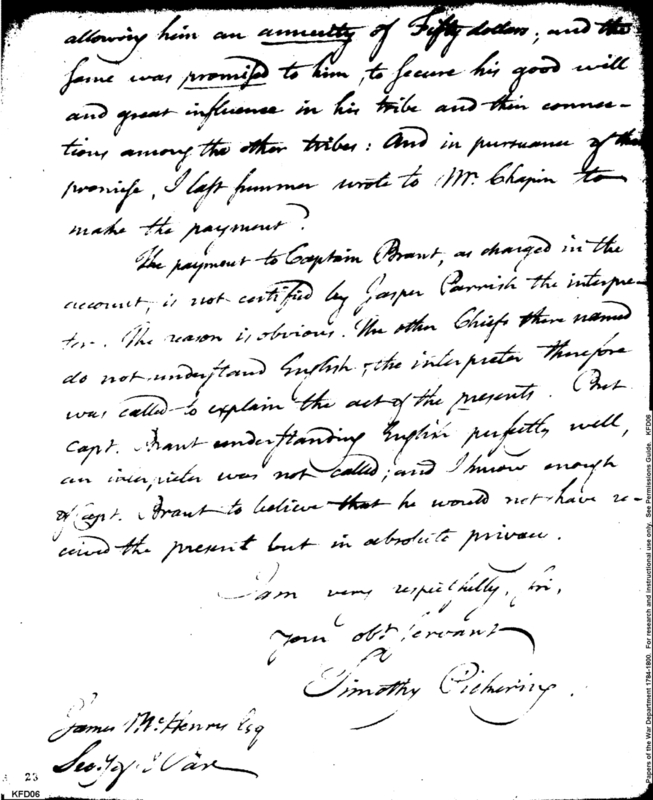 allowing him an annuity of Fifty dollars; and the
same was promised to him, to secure his good will
and great influence in his tribe and their connec-
tions among the other tribes: And in pursuance of the
promise, I last summer wrote to Mr. Chapin to
make the payment.
The payment to Captain Brant, as charged in the
account, is not certified by Jasper Parrish the interpre-
ter. The reason is obvious. The other Chiefs there named
do not understand English; the interpreter therefore
was called to explain the act of the presents. But
Capt. Brant understanding English perfectly well,
an interpreter was not called; and I know enough
of Capt. Brant to believe that he would not have re-
ceived the present but in absolute privacy.
I am very respectfully, Sir,
your obt. servant
Timothy Pickering.
James McHenry Esq
Secy of War
23
KFD06
Papers of the War Department 1784-1800. For research and instructional use only. See Permissions Guide. KFD06